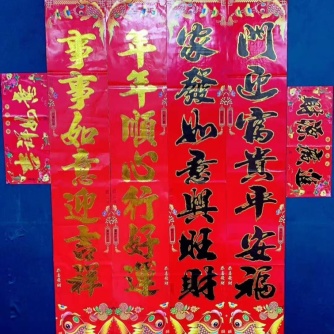 財源廣進
門迎富貴平安福
家發如意興旺財
年年順心行好運
事事如意迎吉祥
吉祥如意